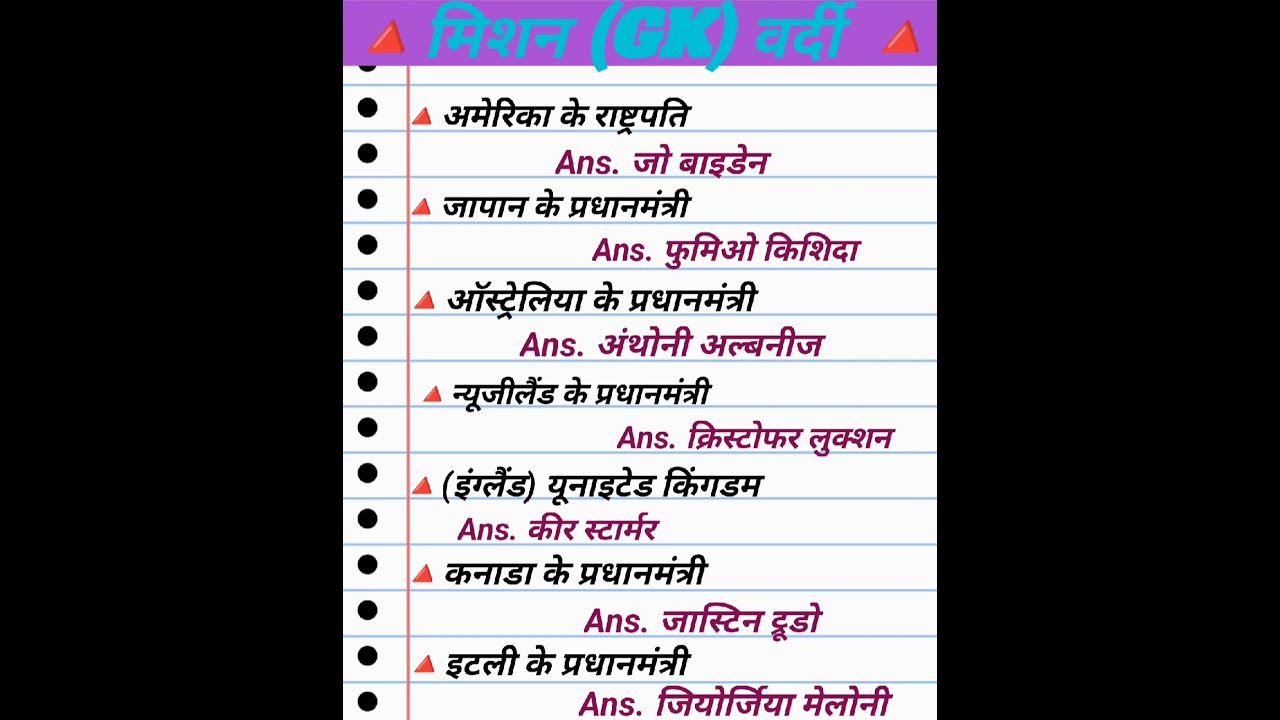 मिशन (GK) वर्दी
अमेरिका के राष्ट्रपति
Ans. जो बाइडेन
जापान के प्रधानमंत्री
Ans. फुमिओ किशिदा
ऑस्ट्रेलिया के प्रधानमंत्री
Ans. अंथोनी अल्बनीज
न्यूजीलैंड के प्रधानमंत्री
Ans. क्रिस्टोफर लुक्शन
(इंग्लैंड) यूनाइटेड किंगडम
Ans. कीर स्टार्मर
कनाडा के प्रधानमंत्री
Ans. जास्टिन ट्रूडो
इटली के प्रधानमंत्री
Ans. जियोर्जिया मेलोनी